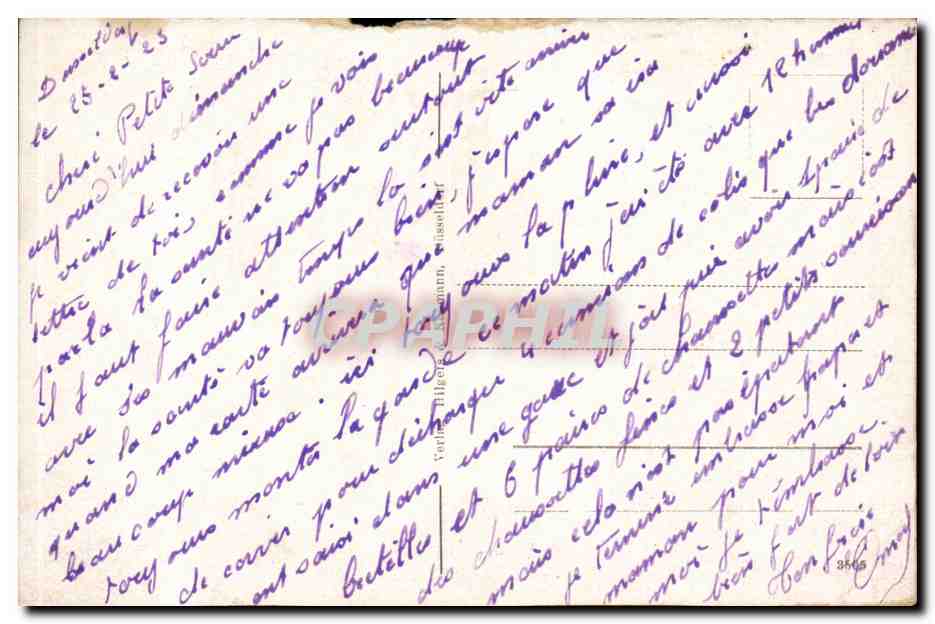 le 25-2-23
Cheri Petite Soeur
aujourd'hui dimanche
je vient de recevoir une
lettre de toi comme je vois
par la ta santé ne va pas beaucoup
il faut faire attention surtout
avec ses mauvais temps la sa vite
moi la santé va toujours bien, j'espère que
quand ma carte arrivera que maman sa
beaucoup mieux. ici toujours la pluie, et aussi
toujours monté la garde ce matin j'ai été avec 12 hommes
de corvé pour décharger 4 camions de colis que les
ont saisi dans une gare et j'ait puie avoir 1 paire de
bretelles et 6 paires de chaussette mais c'est
des chaussettes fines et 2 petits saucisson
mais cela n'est pas épatant
je termine embrasse papa et
maman pour moi et
moi je t'embrasse.
bien fort de loin
Ton frère
Verlag Hilgers &
Düsseldorf
3865
CPAPHIL